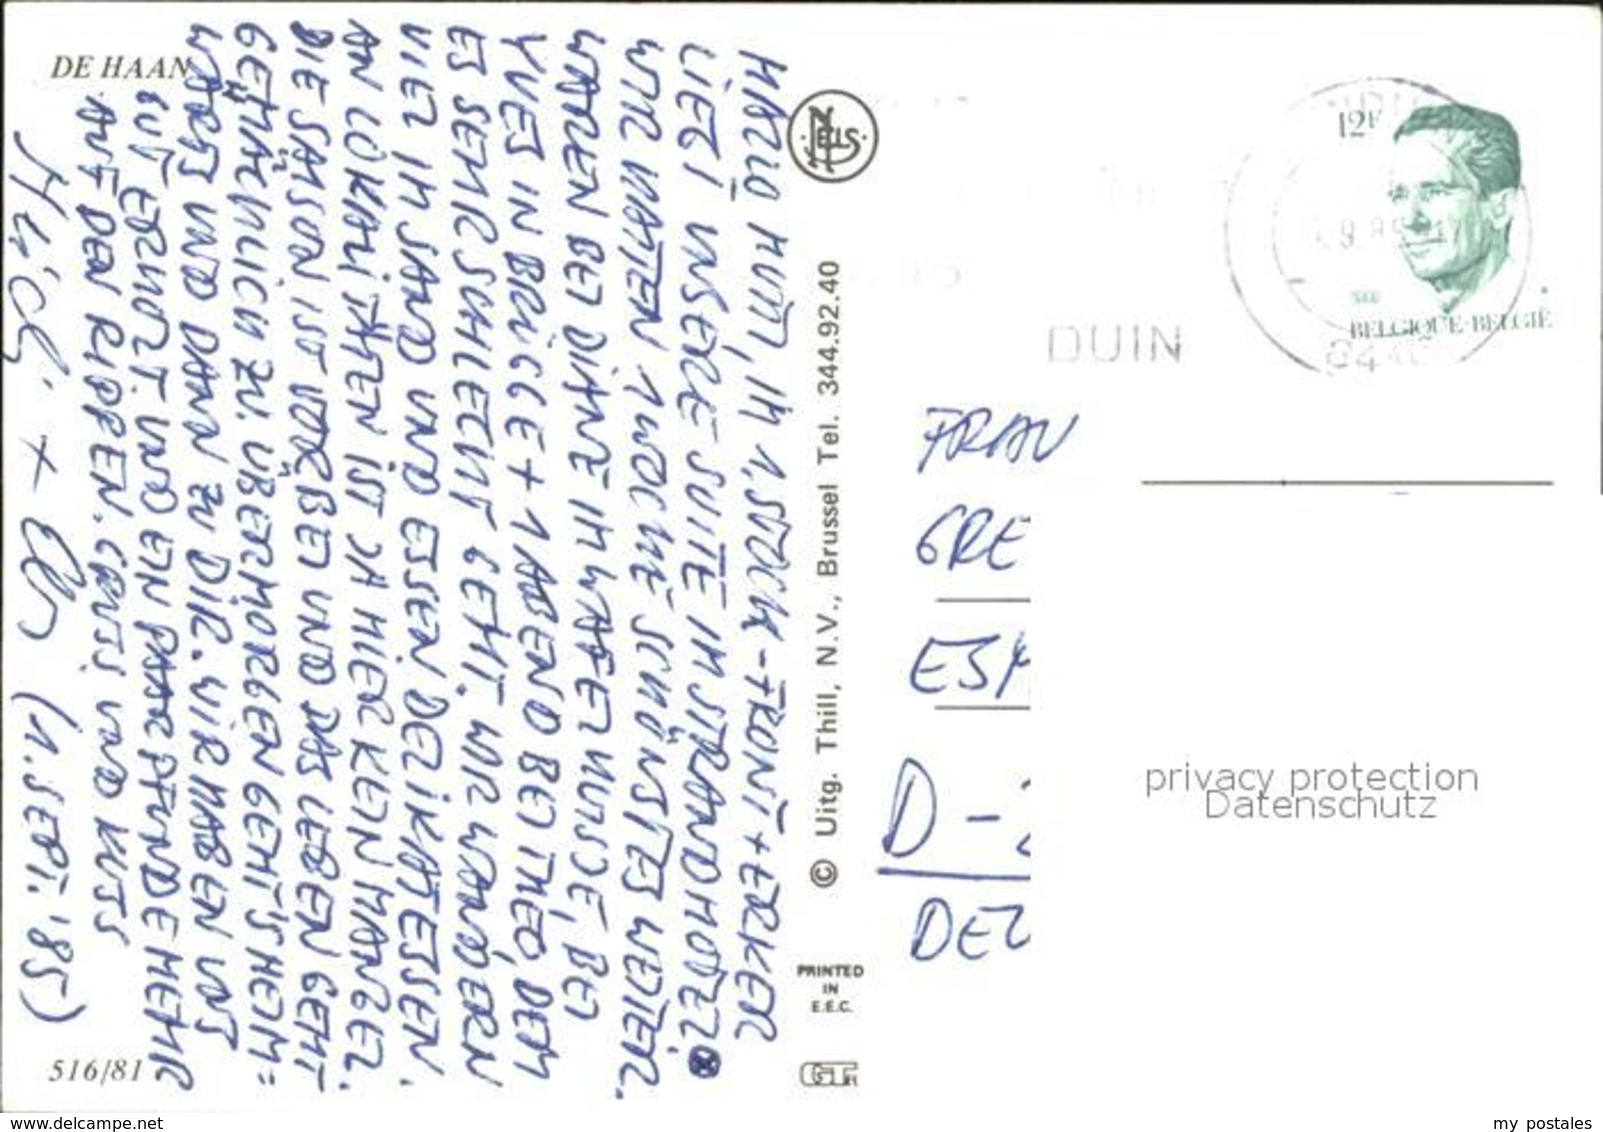 DE HAAN
HALLO MUTTI, IM 1. STOCK-FRONT + ERKER
LIEGT UNSERE SUITE IM STRANDHOTEL
WIR HATTEN 1 WOCHE SCHÖNSTES WETTER.
WAREN BEI DIANE IM WAFELHUISJE, BEI
YVES IN BRÜGGE + 1 ABEND BEI THEO, DEM
ES SEHR SCHLECHT GEHT. WIR WANDERN
VIEL IM SAND UND ESSEN DELIKATESSEN.
AN LOKALITÄTEN IST JA HIER KEIN MANGEL.
DIE SAISON IST VORBEI UND DAS LEBEN GEHT
GEMÄCHLICH ZU. ÜBERMORGEN GEHT'S HEIM=
WÄRTS UND DANN ZU DIR. WIR HABEN UNS
GUT ERHOLT UND EIN PAAR PFUNDE MEHR
AUF DEN RIPPEN. UND
(1. SEPT. '85)
516/81
© Uitg. Thill, N.V., Brussel Tel. 344.92.40
PRINTED
IN
E.E.C.
12F
BELGIQUE-BELGIË
DUIN
FRAU
GRE
D-
privacy protection
Datenschutz
www.delcampe.net
my postales